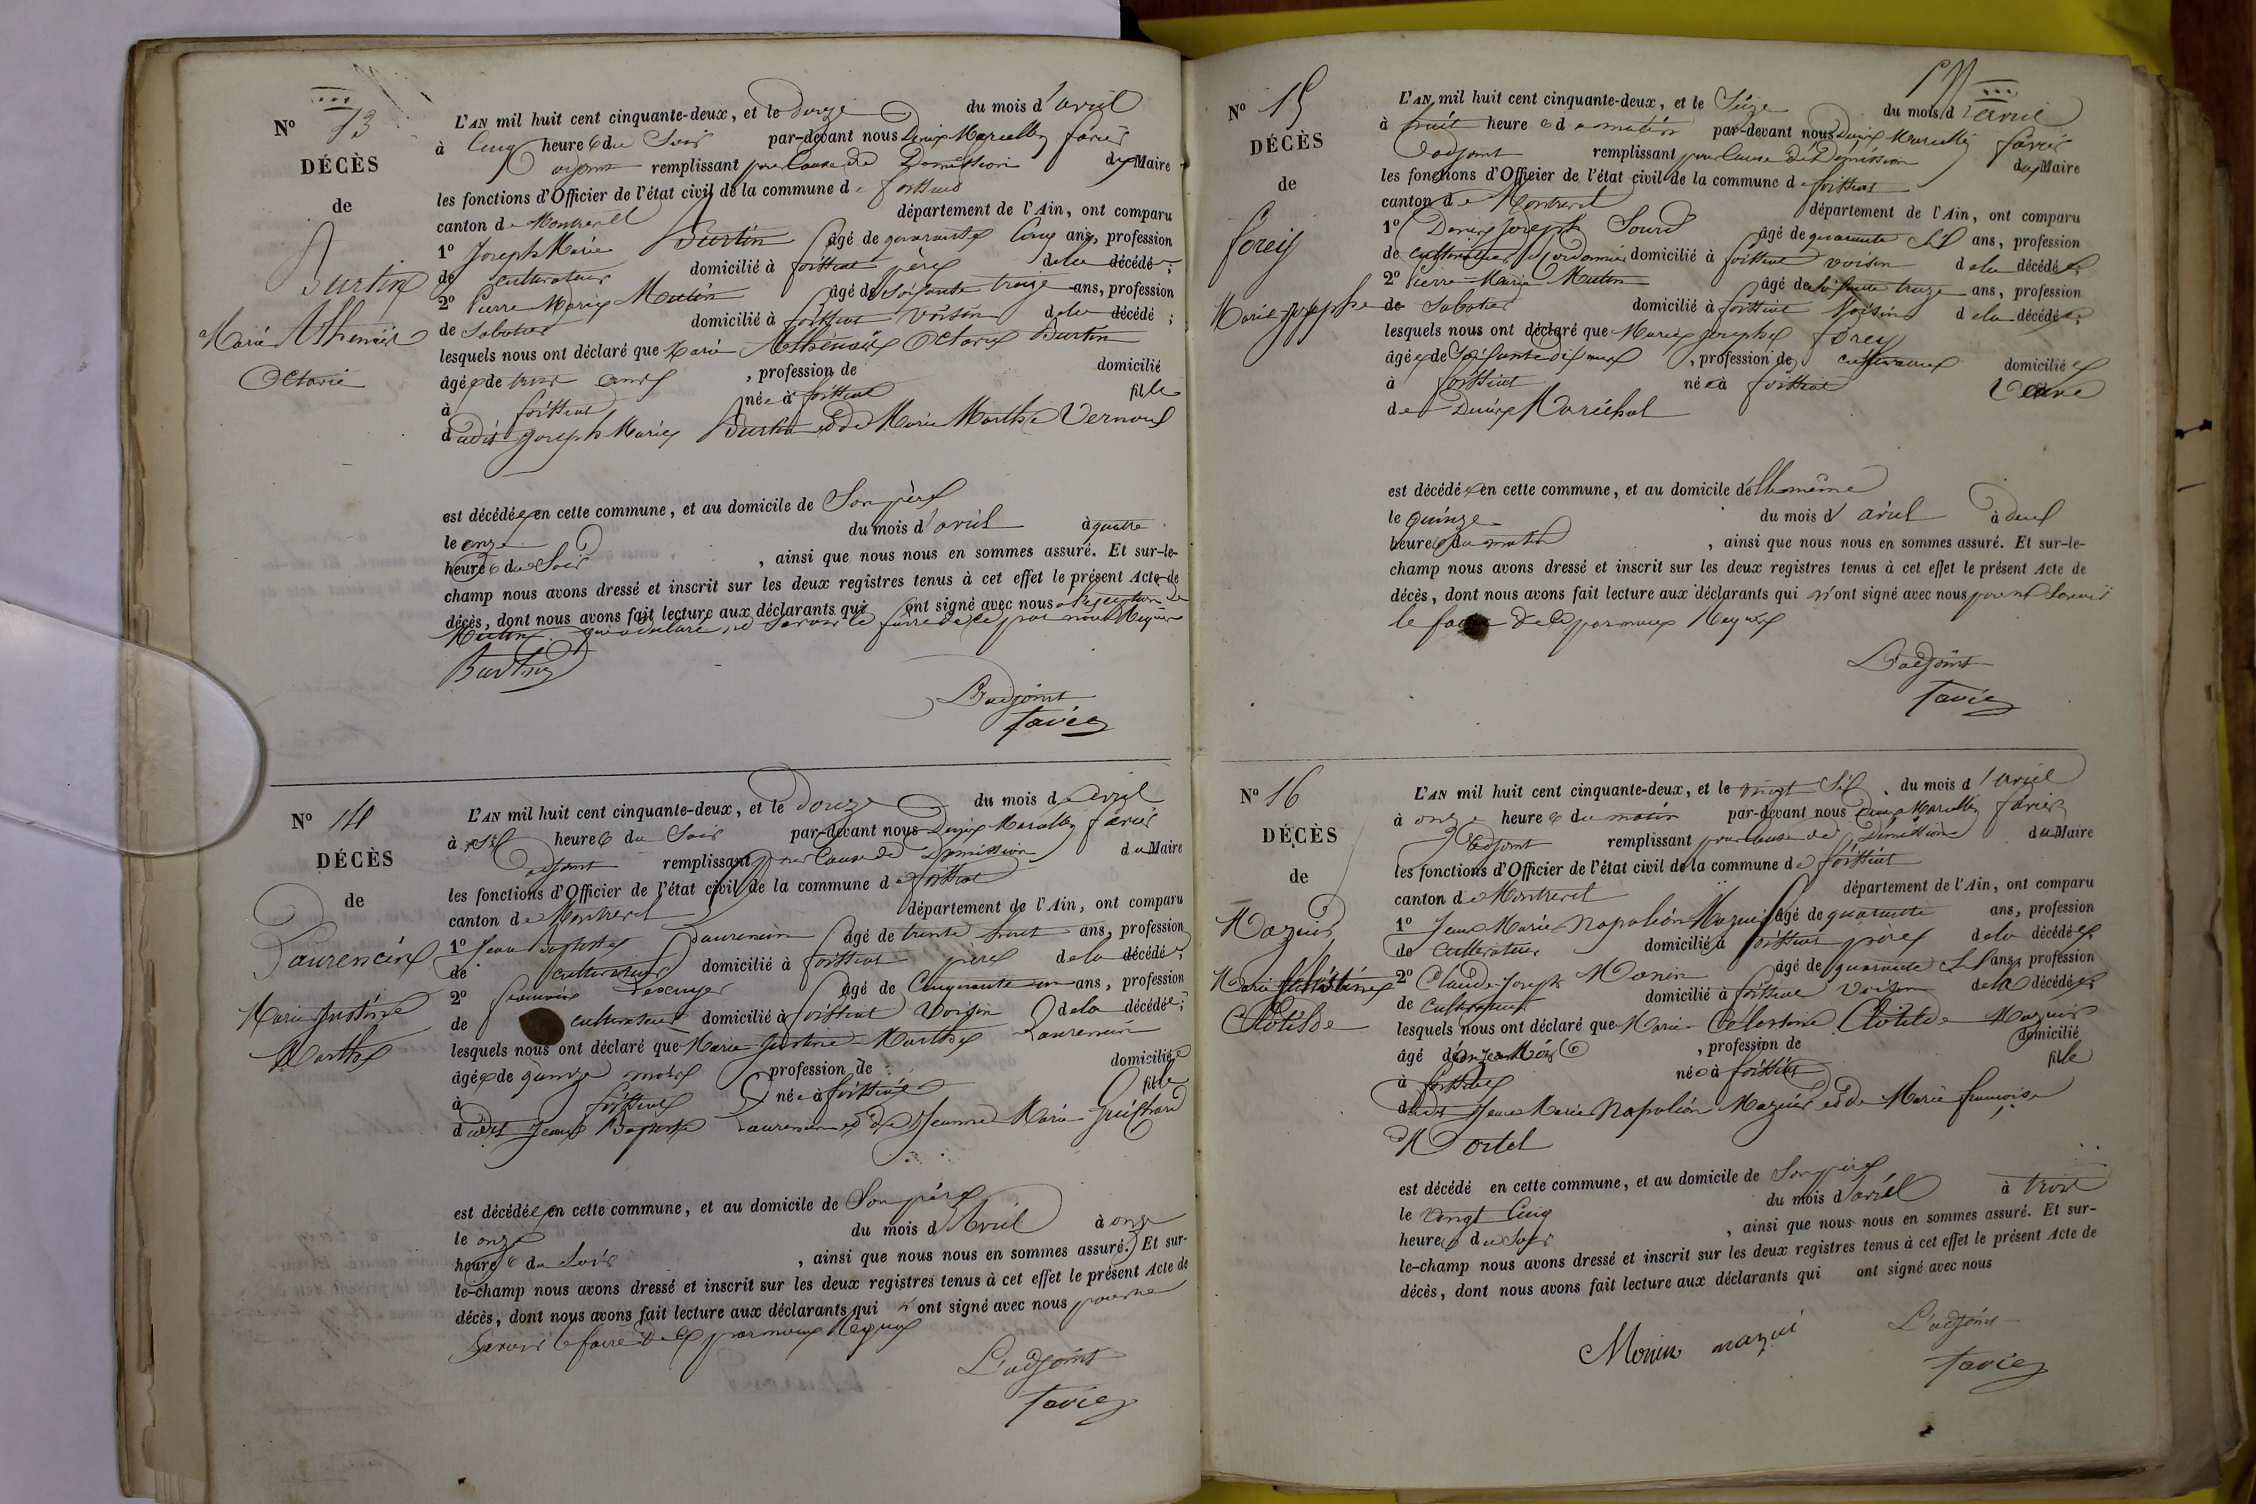 N° 13
DÉCÈS
de
Burtin
Marie Athenaïs
Octavie
L'AN mil huit cent cinquante-deux, et le douze du mois d'avril
à cinq heures du soir par-devant nous Denis Marcellin favier
adjoint remplissant pour cause de Démission du Maire
les fonctions d'Officier de l'état civil de la commune de foissiat
canton de Montrevel département de l'Ain, ont comparu
1° Joseph Marie Burtin âgé de quarante cinq ans, profession
de cultivateur domicilié à foissiat père de la décédée;
2° Pierre Marie Mutin âgé de soixante treize ans, profession
de Sabotier domicilié à foissiat voisin de la décédé;
lesquels nous ont déclaré que Marie Athenaïs Octavie Burtin
âgée de trois ans , profession de domicilié
à foissiat née à foissiat fille
dudit Joseph Marie Burtin et de Marie Marthe Vernoux
est décédée en cette commune, et au domicile de Son père
le onze du mois d'avril à quatre
heures du Soir , ainsi que nous nous en sommes assuré. Et sur-le-
champ nous avons dressé et inscrit sur les deux registres tenus à cet effet le présent Acte de
décès, dont nous avons fait lecture aux déclarants qui ont signé avec nous a l'exception de
Mutin qui a déclaré ne Savoir le faire de ce par nous Requis
Burtin
L'adjoint
favier
N° 14
DÉCÈS
de
Laurencin
Marie Justine
Marthe
L'AN mil huit cent cinquante-deux, et le douze du mois d'avril
à Six heures du Soir par-devant nous Denis Marcellin favier
adjoint remplissant pour cause de Démission du Maire
les fonctions d'Officier de l'état civil de la commune de foissiat
canton de Montrevel département de l'Ain, ont comparu
1° Jean Baptiste Laurencin âgé de trente huit ans, profession
de cultivateur domicilié à foissiat père de la décédée;
2° François âgé de Cinquante un ans, profession
de cultivateur domicilié à foissiat Voisin de la décédée;
lesquels nous ont déclaré que Marie Justine Marthe Laurencin
âgée de quinze mois profession de domiciliée
à foissiat née à foissiat fille
dudit Jean Baptiste Laurencin et de Jeanne Marie Guichard
est décédée en cette commune, et au domicile de Son père
le onze du mois d'Avril à onze
heures du Soir , ainsi que nous nous en sommes assuré. Et sur-
le-champ nous avons dressé et inscrit sur les deux registres tenus à cet effet le présent Acte de
décès, dont nous avons fait lecture aux déclarants qui n'ont signé avec nous pour ne
Savoir le faire de ce par nous Requis
L'adjoint
favier
N° 15
DÉCÈS
de
forey
Marie josephe
L'AN mil huit cent cinquante-deux, et le Seize du mois d'avril
à huit heures du matin par-devant nous Denis Marcellin favier
adjoint remplissant pour cause de Démission du Maire
les fonctions d'Officier de l'état civil de la commune de foissiat
canton de Montrevel département de l'Ain, ont comparu
1° Denis Joseph Sourd âgé de quarante Six ans, profession
de domicilié à foissiat voisin de la décédée;
2° Pierre Marie Mutin âgé de soixante treize ans, profession
de Sabotier domicilié à foissiat Voisin de la décédée;
lesquels nous ont déclaré que Marie josephe forey
âgée de Soixante dix neuf , profession de cultivateur domiciliée
à foissiat née à foissiat Veuve
de Denis Maréchal
est décédée en cette commune, et au domicile d'elle même
le quinze du mois d'avril à deux
heures du matin , ainsi que nous nous en sommes assuré. Et sur-le-
champ nous avons dressé et inscrit sur les deux registres tenus à cet effet le présent Acte de
décès, dont nous avons fait lecture aux déclarants qui n'ont signé avec nous pour ne Savoir
le faire de ce par nous Requis
L'adjoint
favier
N° 16
DÉCÈS
de
Mazuir
Marie Célestine
Clotilde
L'AN mil huit cent cinquante-deux, et le vingt Six du mois d'avril
à onze heures du matin par-devant nous Denis Marcellin favier
adjoint remplissant pour cause de Démission du Maire
les fonctions d'Officier de l'état civil de la commune de foissiat
canton de Montrevel département de l'Ain, ont comparu
1° Jean Marie Napoléon Mazuir âgé de quarante ans, profession
de cultivateur domicilié à foissiat père de la décédée
2° Claude Joseph Monin âgé de quarante Six ans, profession
de cultivateur domicilié à foissiat voisin de la décédée
lesquels nous ont déclaré que Marie Célestine Clotilde Mazuir
âgé d'onze Mois , profession de domicilié
à foissiat née à foissiat fille
dudit Jean Marie Napoléon Mazuir et de Marie françoise
Mortel
est décédé en cette commune, et au domicile de Son père
le vingt Cinq du mois d'avril à trois
heures du Soir , ainsi que nous nous en sommes assuré. Et sur-
le-champ nous avons dressé et inscrit sur les deux registres tenus à cet effet le présent Acte de
décès, dont nous avons fait lecture aux déclarants qui ont signé avec nous
Monin mazui
L'adjoint
favier